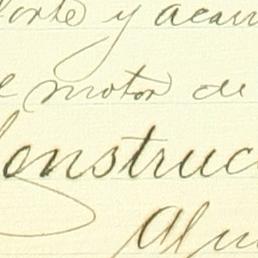 porte y acarr
el motor de
Construc
Alqu